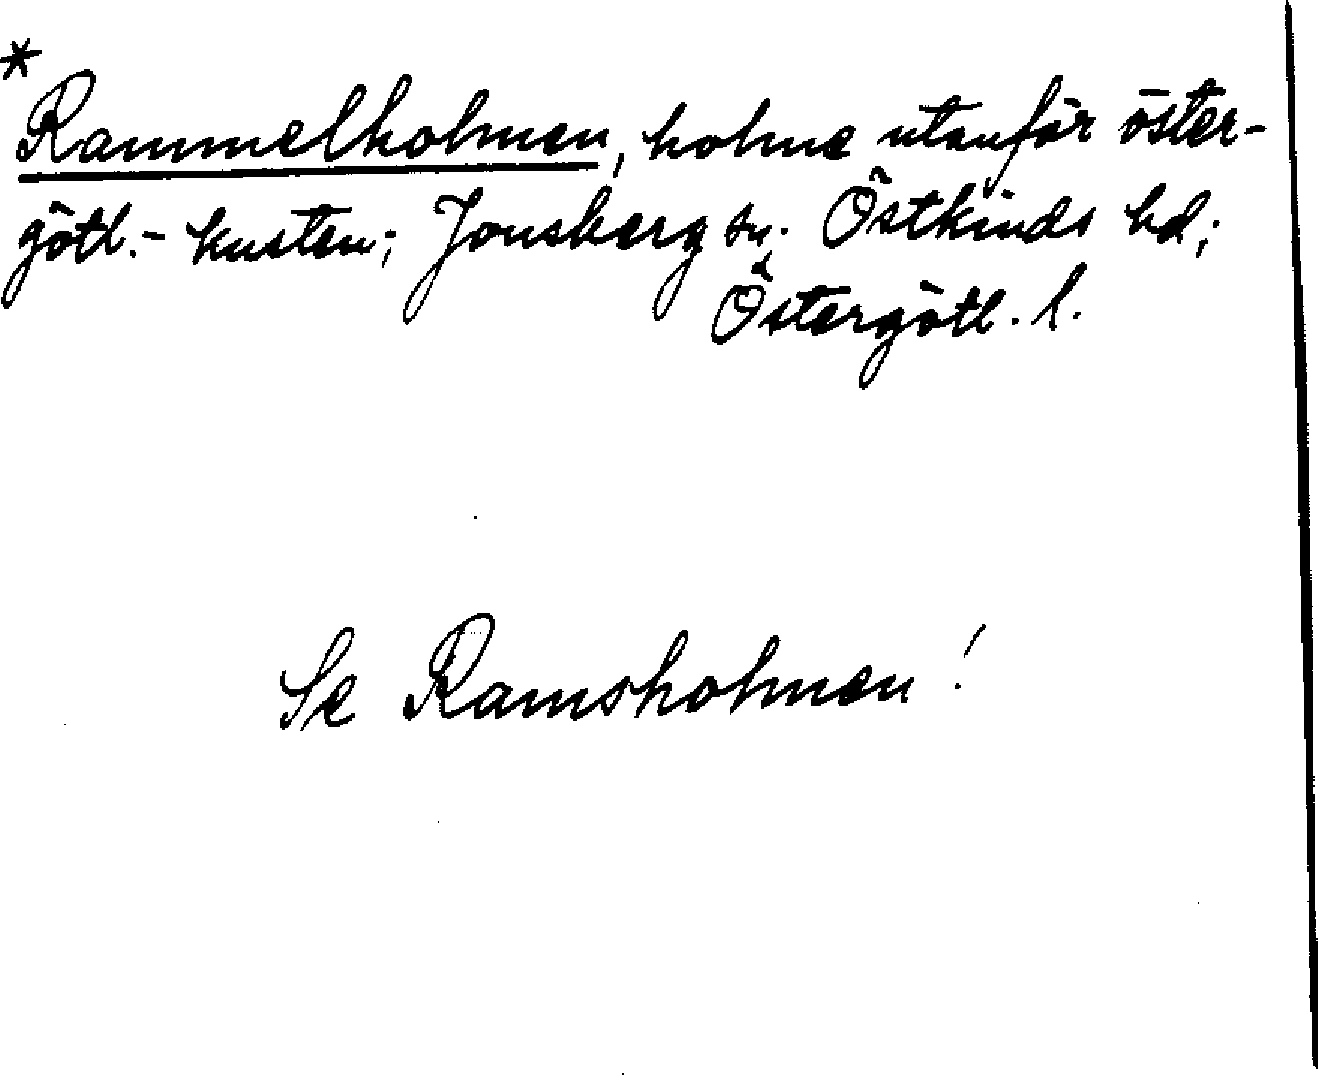 *
Rammelholmen, holme utanför öster-
götl.- kusten; Jonsberg sn. Östkinds hd;
Östergötl. l.
Se Ramsholmen!